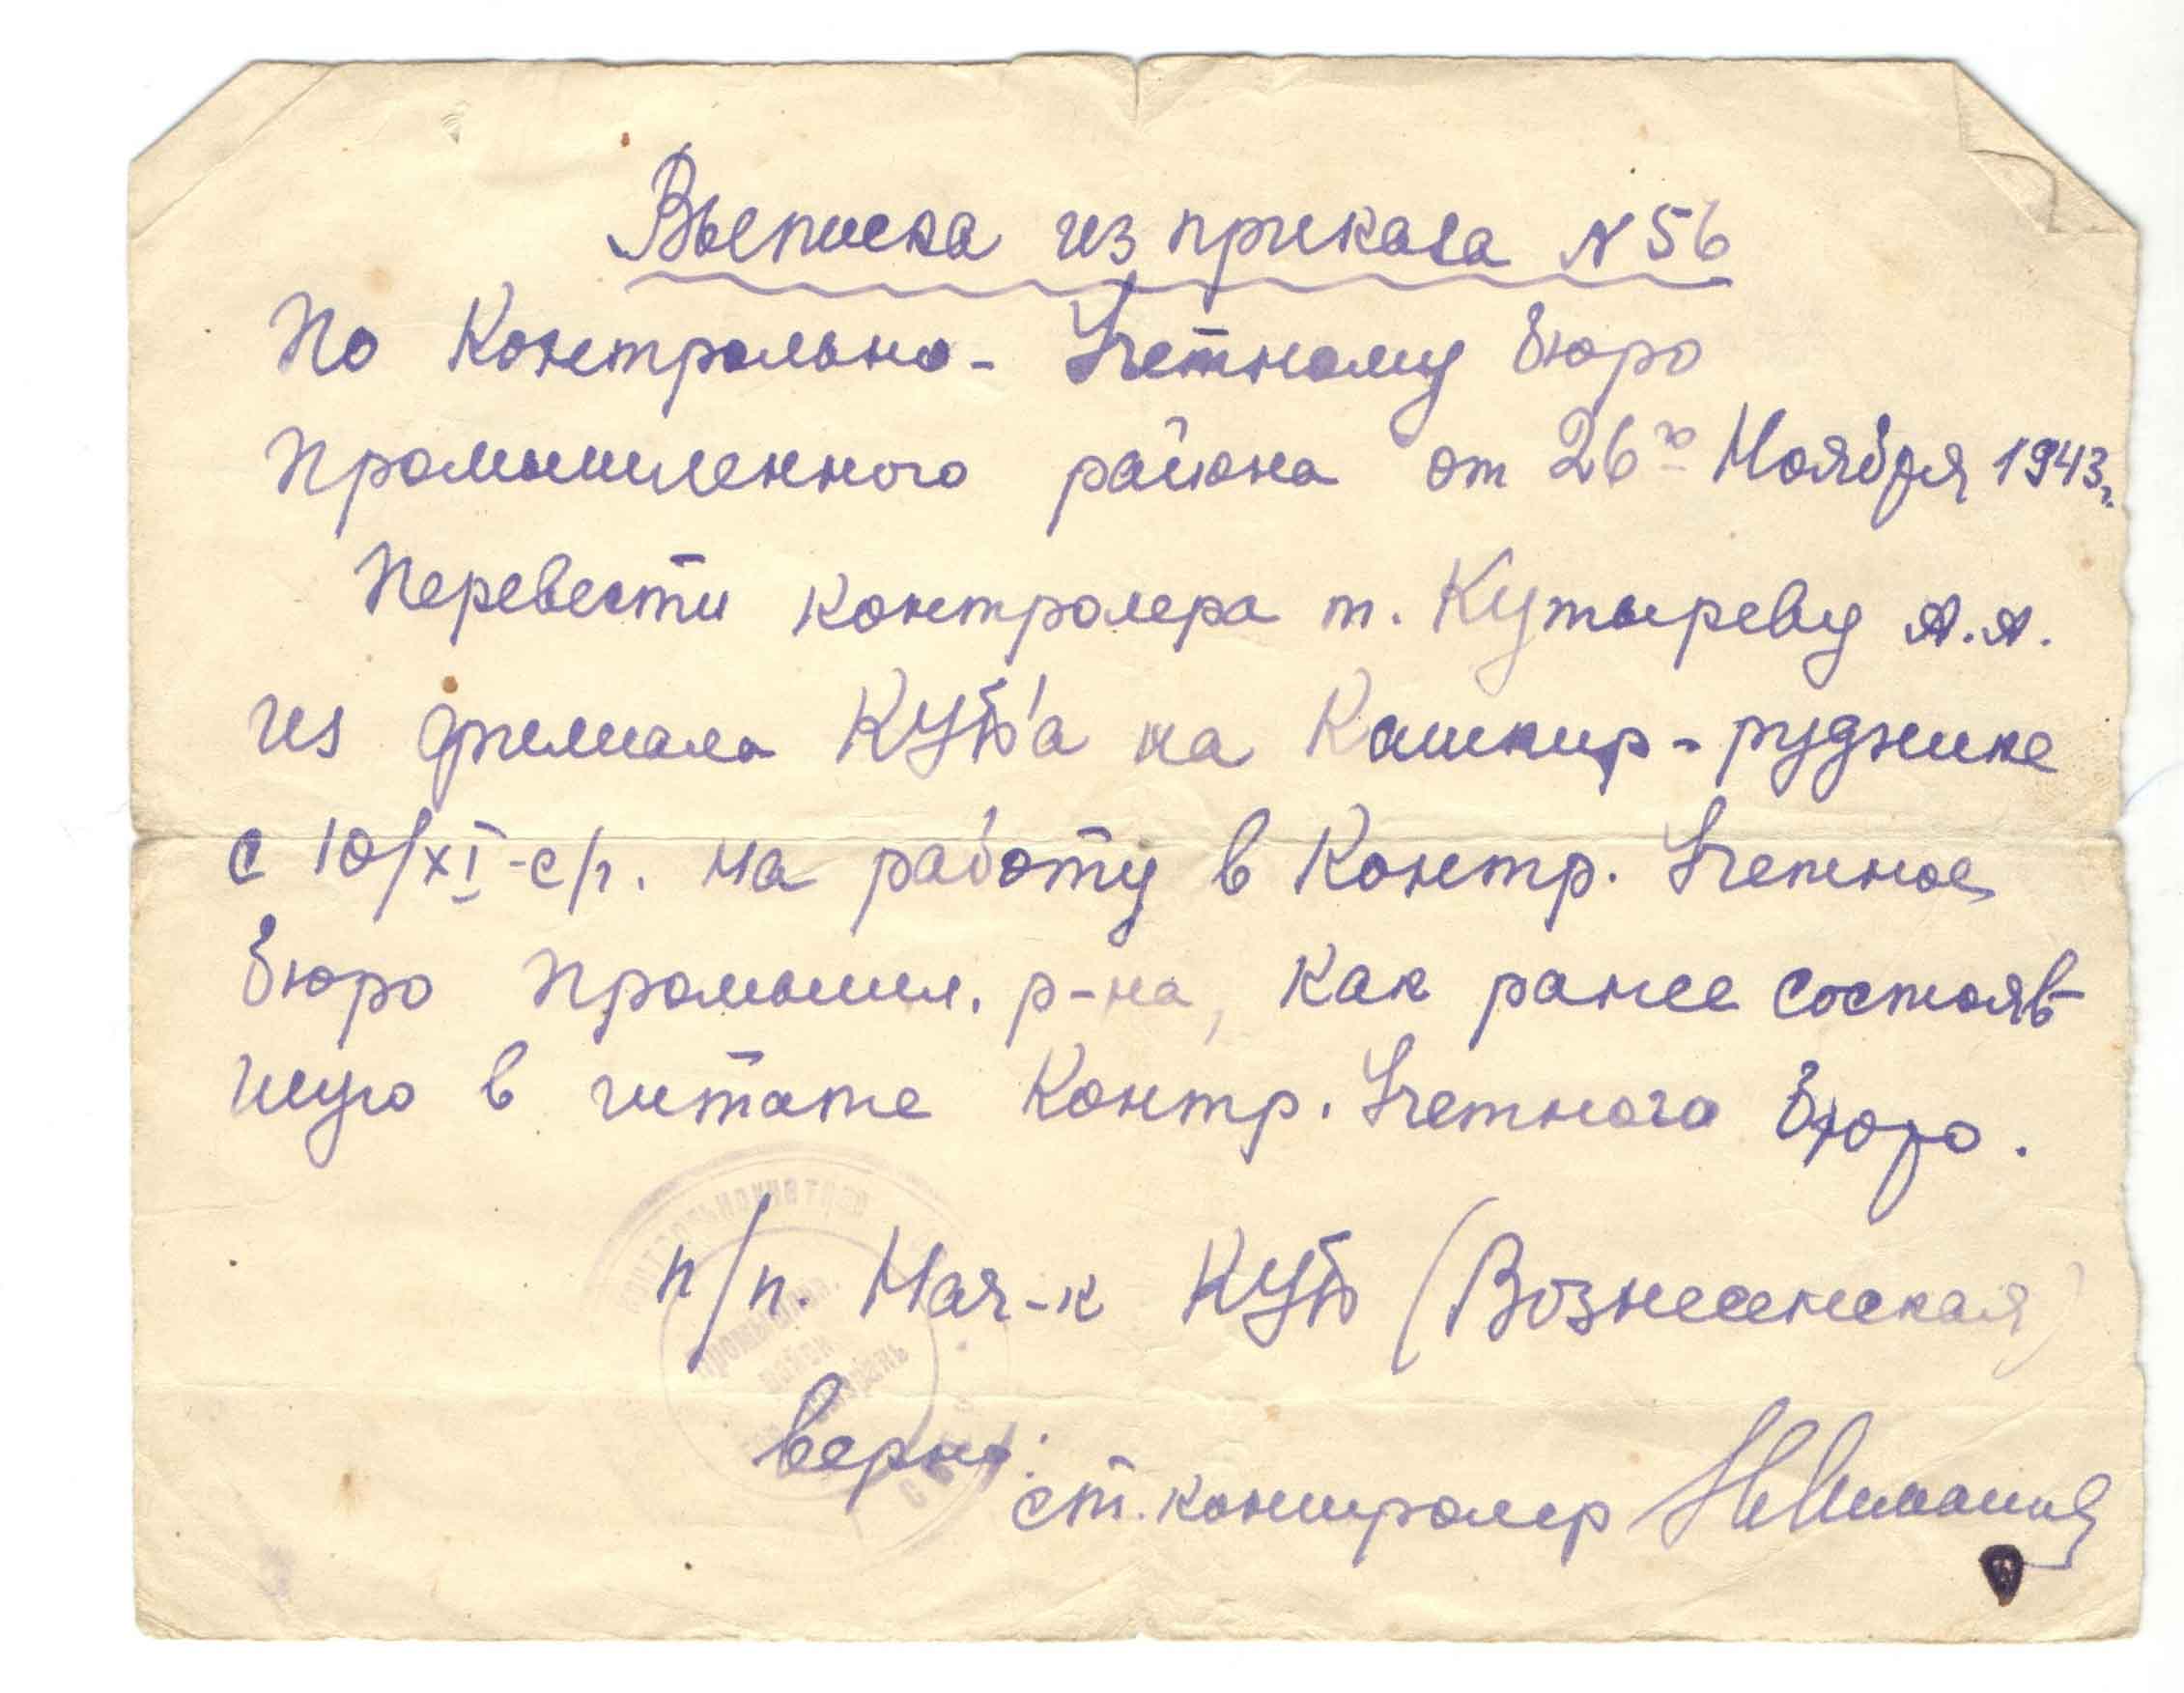 Выписка из приказа N 56
По Контрольно-Учетному Бюро
Промышленного района от 26го Ноября 1943г.
Перевести контролера т. Кутыреву А.А.
из филиала КУБ'а на Кашпир-руднике
с 10/XI-с/г. на работу в Контр. Учетное
Бюро Промышл. р-на, как ранее состояв-
шую в штате Контр. Учетного Бюро.
п/п. Нач-к КУБ (Вознесенская)
верно:
ст. контролер